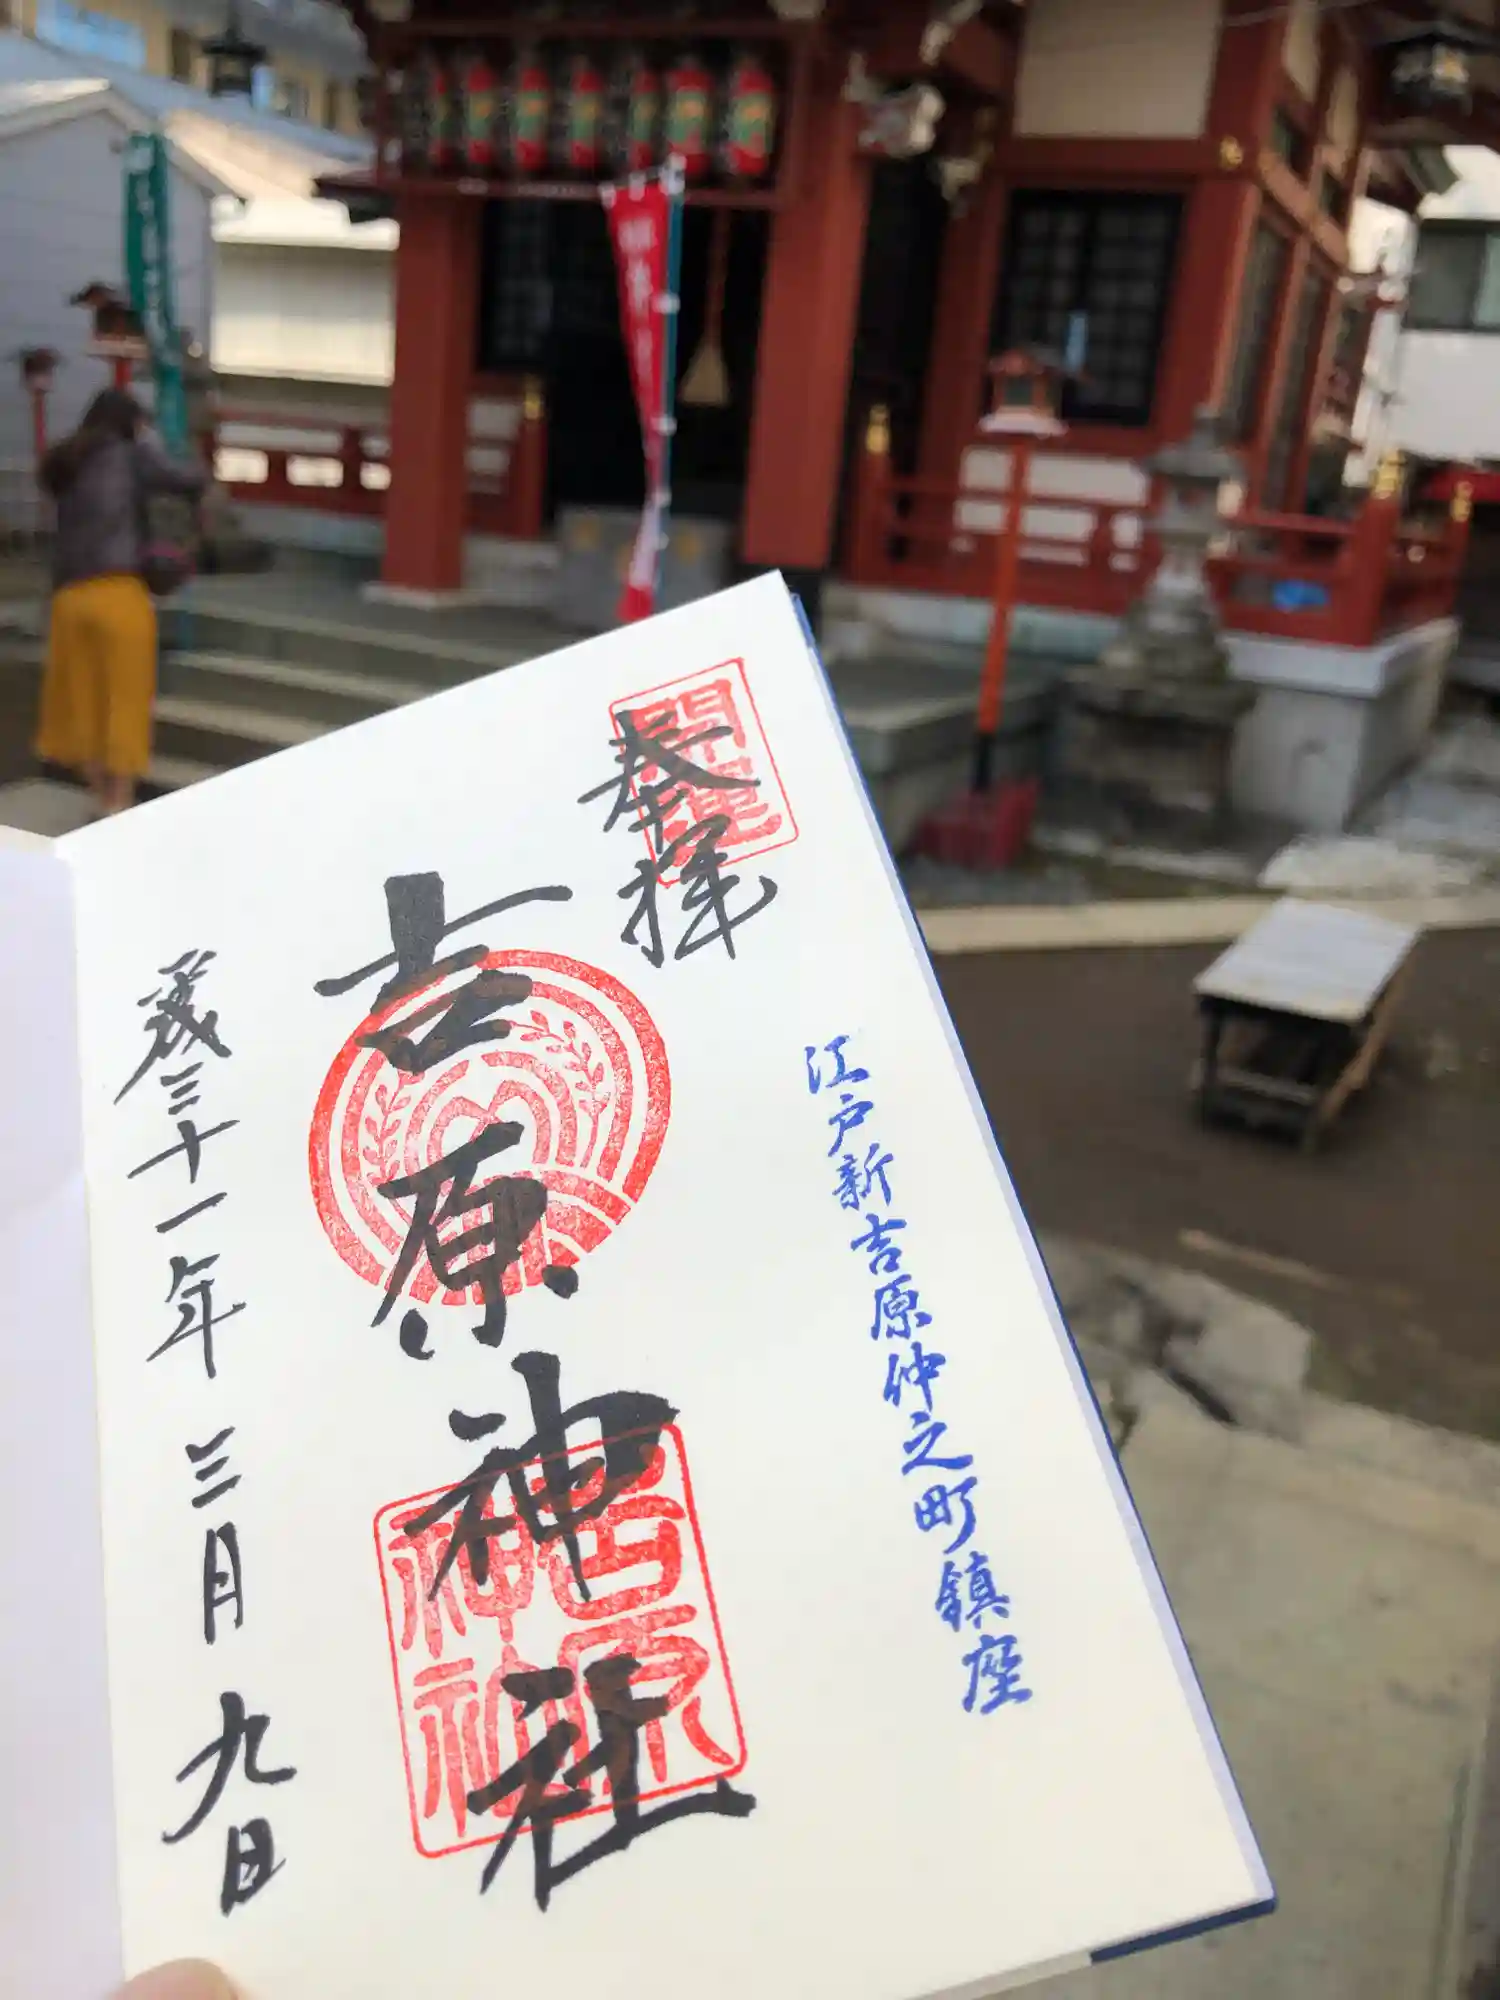 開運
奉拝
江戸新吉原仲之町鎮座
吉原神社
吉原
神社
歳三十一年三月九日